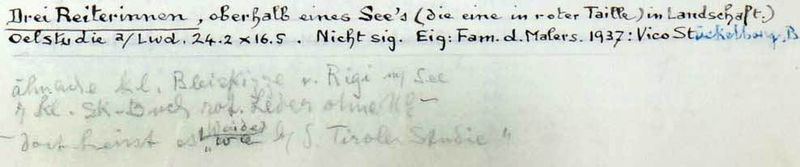 Drei Reiterinnen, oberhalb eines See's (die eine in roter Taille) in Landschaft.)
Oelstudie a/Lwd. 24.2 x 16.5. Nicht sig. Eig: Fam. d. Malers. 1937: Vico Stückelberg, B
kl. Bleiskizze v. Rigi m/ See
kl. Sk-Buch rot. Leder ohne
dort heisst es "wie Tiroler Studie"